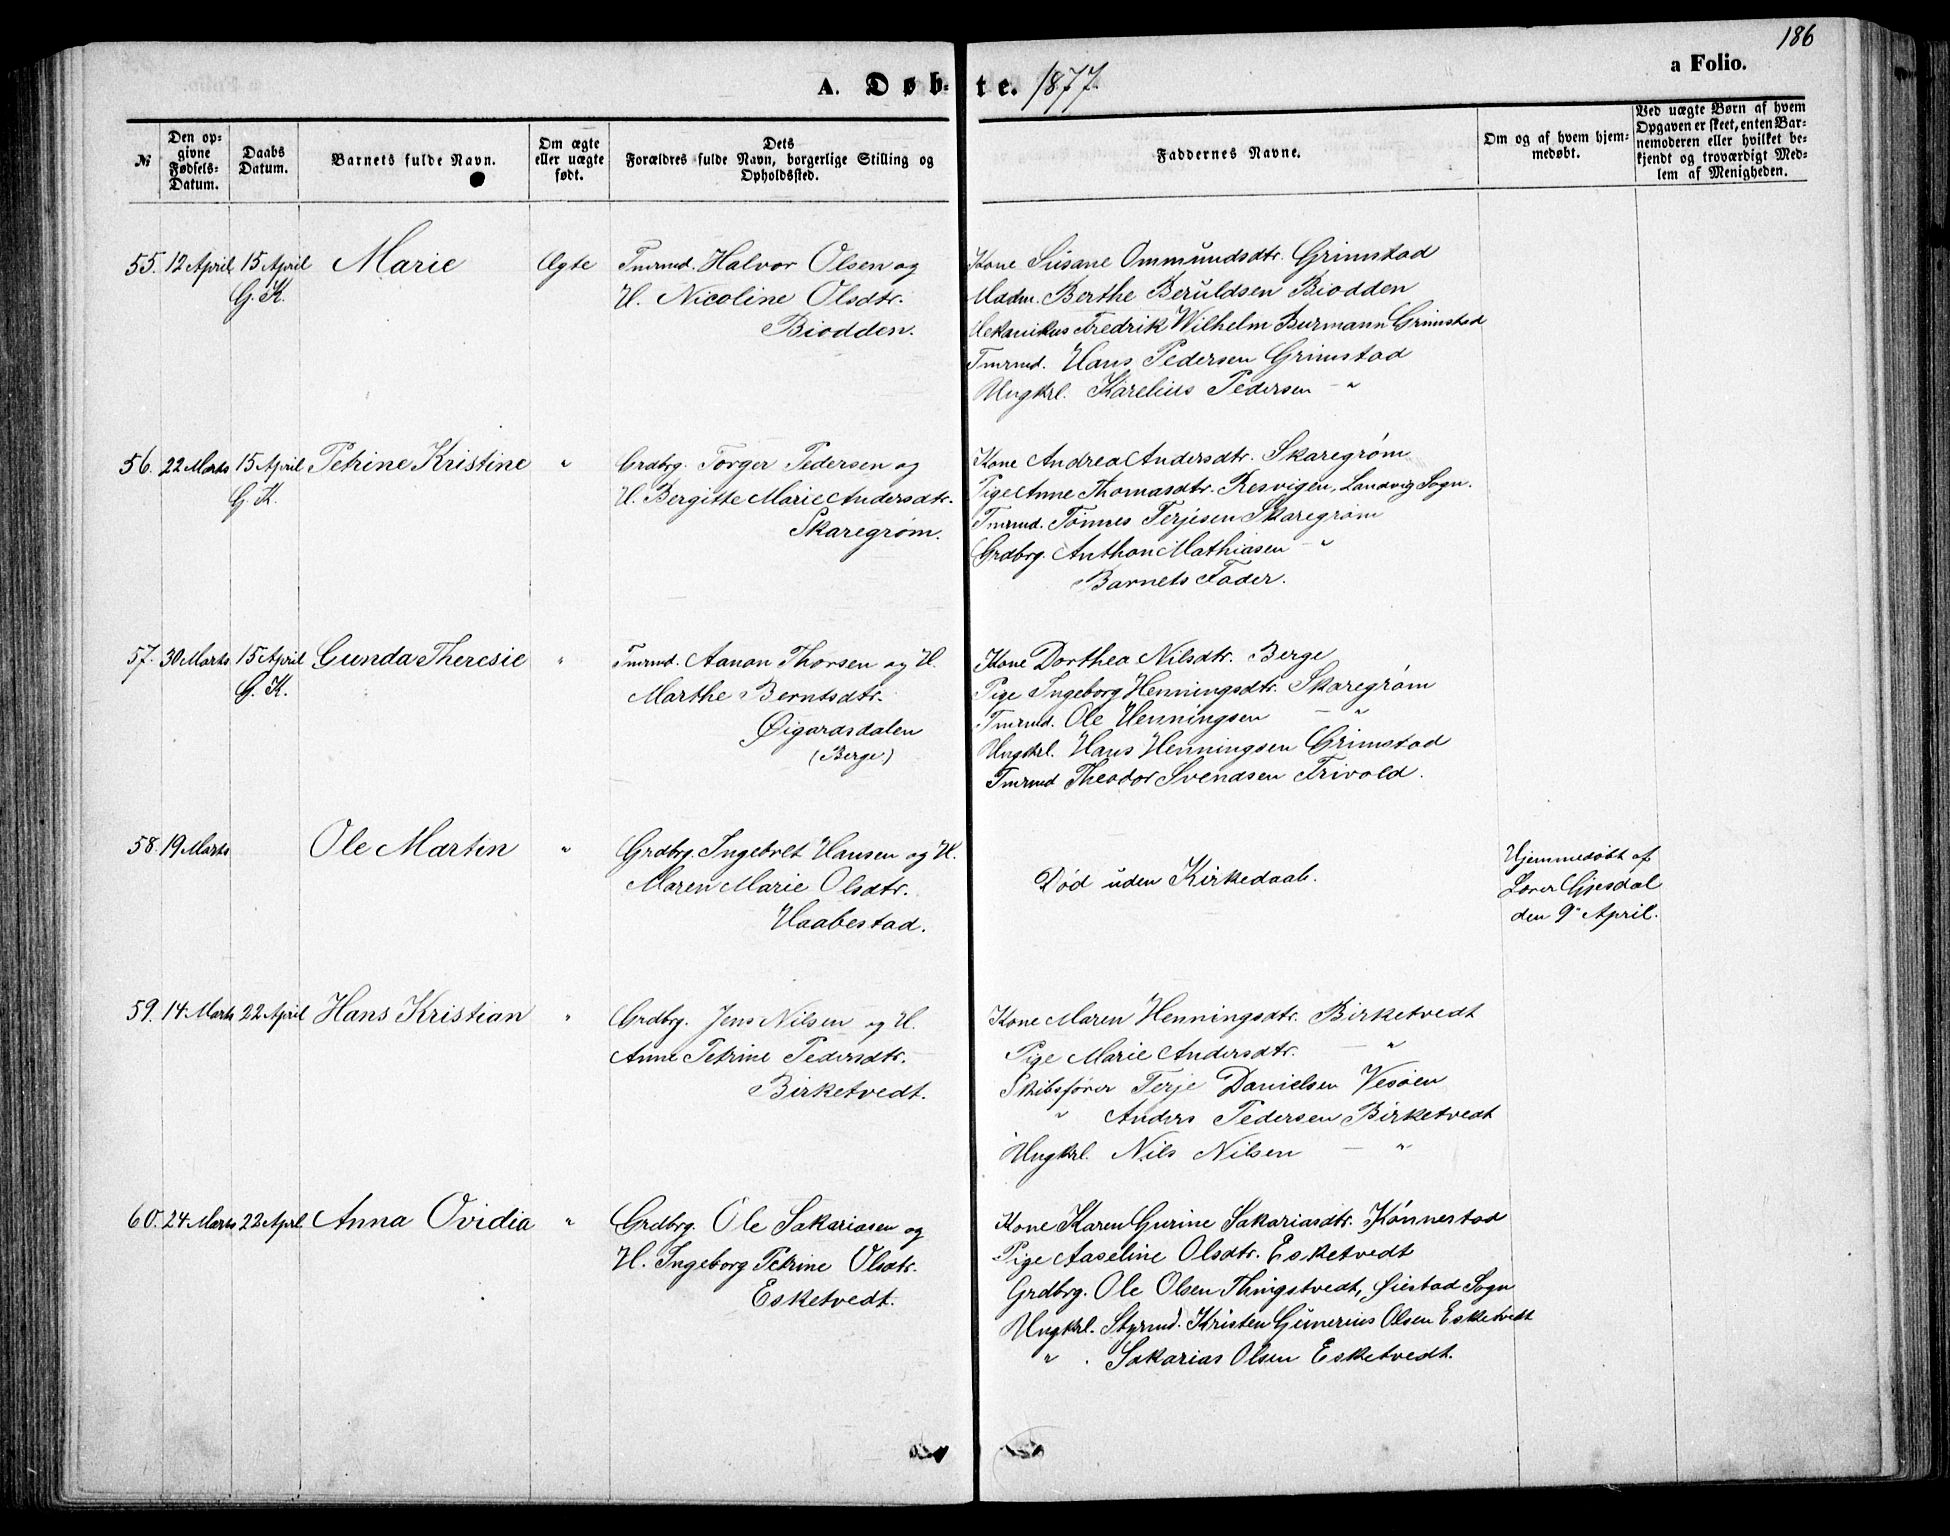 186
A. Døb- te. 1877.
a Folio.
No
Den op-
givne
Fødsels-
Datum.
Daabs
Datum.
Barnets fulde Navn.
Om ægte
eller uægte
født.
Dets
Forældres fulde Navn, borgerlige Stilling og
Opholdssted.
Faddernes Navne.
Om og af hvem hjem-
medøbt.
Ved uægte Børn af hvem
Opgaven er skeet, enten Bar-
nemoderen eller hvilket be-
kjendt og troværdigt Med-
lem af Menigheden.
55. 12 April 15 April Marie Ægte Tmrmd. Halvor Olsen og
G. K. H. Nicoline Olsdtr.
Biodden.
Kone Susane Ommundsdtr. Grimstad
Madm. Berthe Beruldsen Biodden
Mekanikus Fredrik Wilhelm Burmann Grimstad
Tmrmd. Hans Pedersen Grimstad
Ungkrl. Karelius Pedersen – "
56. 22 Marts 15 April Petrine Kristine " Grdbrg. Torger Pedersen og
G. K. H. Bergitte Marie Andersdtr.
Skaregrøm.
Kone Andrea Andersdtr. Skaregrøm
Pige Anne Thomasdtr. Resvigen, Landvig Sogn.
Tmrmd. Tønnes Terjesen Skaregrøm
Grdbrg. Anthon Mathiasen – "
Barnets Fader.
57. 30 Marts 15 April Gunda Theresie " Tmrmd. Aanon Thorsen og H.
G. K. Marthe Berntsdtr.
Øigardsdalen
(Berge)
Kone Dorthea Nilsdtr. Berge
Pige Ingeborg Henningsdtr. Skaregrøm
Tmrmd. Ole Henningsen – "
Ungkrl. Hans Henningsen Grimstad
Tmrmd Theodor Svendsen Frivold.
58. 19 Marts Ole Martin " Grdbrg. Ingebret Hansen og H.
Maren Marie Olsdtr.
Haabestad.
Død uden Kirkedaab.
Hjemmedøbt af
Lærer Gjesdal
den 9" April.
59. 14 Marts 22 April Hans Kristian " Grdbrg. Jens Nilsen og H.
Anne Petrine Pedersdtr.
Birketvedt.
Kone Maren Henningsdtr. Birketvedt
Pige Marie Andersdtr. – "
Skibsfører Terje Danielsen Vesøen
" Anders Pedersen Birketvedt
Ungkrl. Nils Nilsen – "
60. 24 Marts 22 Aprl. Anna Ovidia " Grdbrg. Ole Sakariasen og
H. Ingeborg Petrine Olsdtr.
Esketvedt.
Kone Karen Gurine Sakariasdtr. Kónnestad
Pige Aaseline Olsdtr. Esketvedt
Grdbrg. Ole Olsen Thingstvedt, Øiestad Sogn
Ungkrl. Styrmd. Kristen Gunerius Olsen Esketvedt
" . Sakarias Olsen Esketvedt.